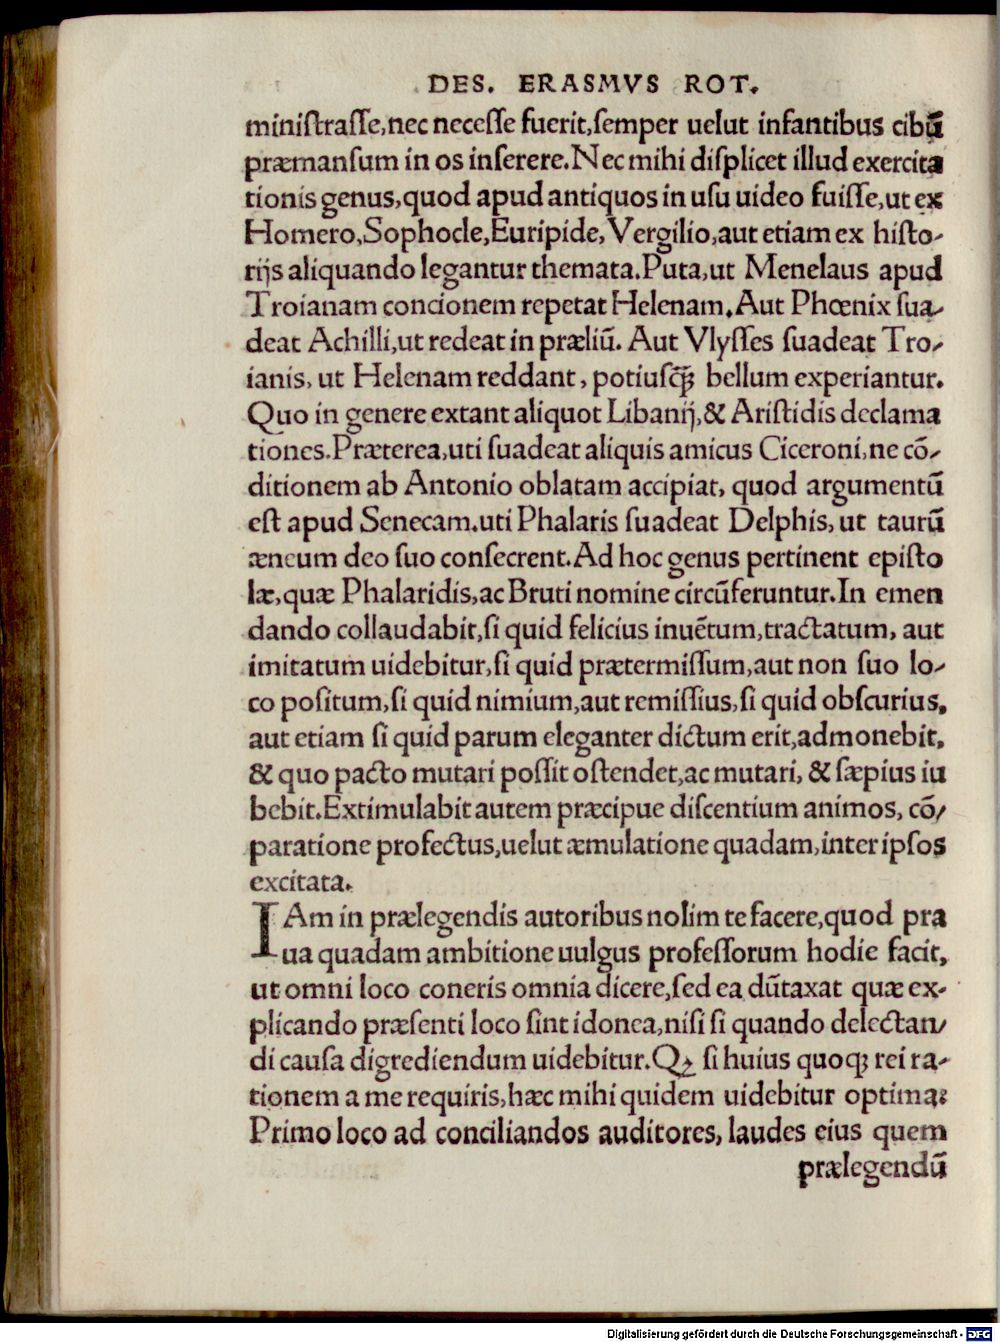 DES. ERASMVS ROT.
miniſtraſſe,nec neceſſe fuerit,ſemper uelut infantibus cibū
præmanſum in os inſerere.Nec mihi diſplicet illud exercita
tionis genus,quod apud antiquos in uſu uideo fuiſſe,ut ex
Homero,Sophocle,Euripide,Vergilio,aut etiam ex hiſto-
rijs aliquando legantur themata.Puta,ut Menelaus apud
Troianam concionem repetat Helenam.Aut Phœnix ſua-
deat Achilli,ut redeat in præliū. Aut Vlyſſes ſuadeat Tro-
ianis, ut Helenam reddant, potiuſcꝗ̃ bellum experiantur.
Quo in genere extant aliquot Libanij,& Ariſtidis declama
tiones.Præterea,uti ſuadeat aliquis amicus Ciceroni,ne cō-
ditionem ab Antonio oblatam accipiat, quod argumentū
eſt apud Senecam.uti Phalaris ſuadeat Delphis, ut taurū
æneum deo ſuo conſecrent.Ad hoc genus pertinent epiſto
læ,quæ Phalaridis,ac Bruti nomine circūferuntur.In emen
dando collaudabit,ſi quid felicius inuētum,tractatum, aut
imitatum uidebitur,ſi quid prætermiſſum,aut non ſuo lo-
co poſitum,ſi quid nimium,aut remiſſius,ſi quid obſcurius,
aut etiam ſi quid parum eleganter dictum erit,admonebit,
& quo pacto mutari poſſit oſtendet,ac mutari, & ſæpius iu
bebit.Extimulabit autem præcipue diſcentium animos, cō-
paratione profectus,uelut æmulatione quadam,inter ipſos
excitata.
IAm in prælegendis autoribus nolim te facere,quod pra
ua quadam ambitione uulgus profeſſorum hodie facit,
ut omni loco coneris omnia dicere,ſed ea dūtaxat quæ ex-
plicando præſenti loco ſint idonea,niſi ſi quando delectan-
di cauſa digrediendum uidebitur.Qꝫ ſi huius quoqꝫ rei ra-
tionem a me requiris,hæc mihi quidem uidebitur optima:
Primo loco ad conciliandos auditores, laudes eius quem
prælegendū
Digitalisierung gefördert durch die Deutsche Forschungsgemeinschaft - DFG